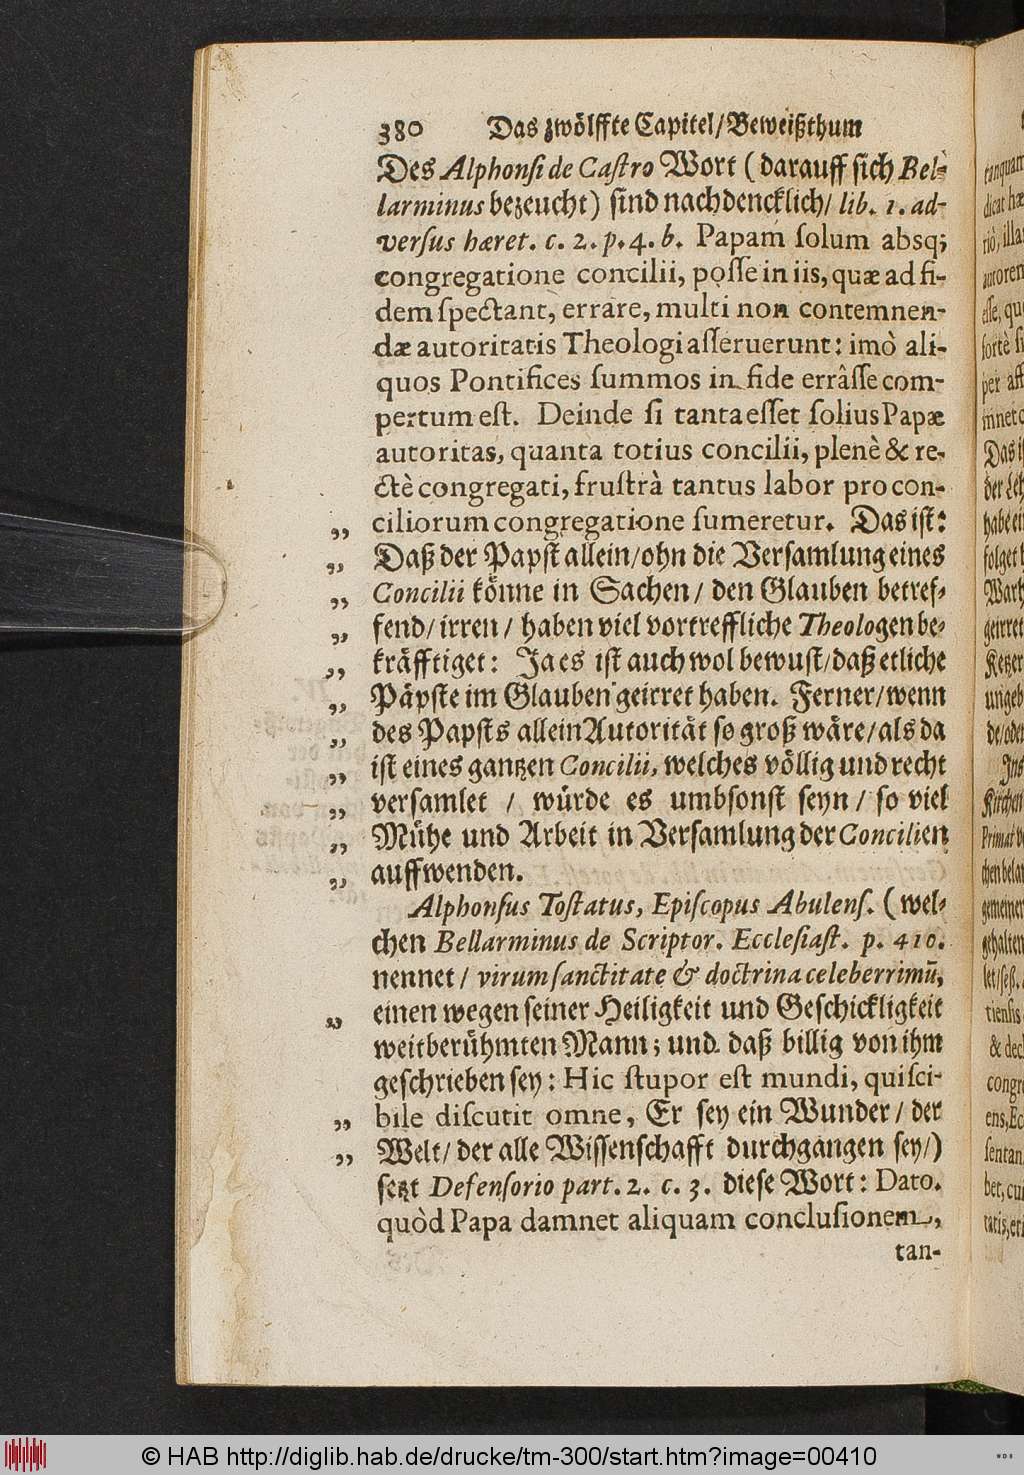 380 Das zwölffte Capitel/Beweißthum
Des Alphonſi de Caſtro Wort (darauff ſich Bel-
larminus bezeucht) ſind nachdencklich/ lib. 1. ad-
verſus hæret. c. 2. p. 4. b. Papam ſolum absq;
congregatione concilii, poſſe in iis, quæ ad fi-
dem ſpectant, errare, multi non contemnen-
dæ autoritatis Theologi aſſeruerunt: imò ali-
quos Pontifices ſummos in fide errâſſe com-
pertum eſt. Deinde ſi tanta eſſet ſolius Papæ
autoritas, quanta totius concilii, plenè & re-
ctè congregati, fruſtrà tantus labor pro con-
„ ciliorum congregatione ſumeretur. Das iſt:
„ Daß der Papſt allein/ohn die Verſamlung eines
„ Concilii könne in Sachen/ den Glauben betref-
„ fend/ irren/ haben viel vortreffliche Theologen be-
„ kräfftiget: Ja es iſt auch wol bewuſt/daß etliche
„ Päpſte im Glauben geirret haben. Ferner/wenn
„ des Papſts allein Autorität ſo groß wäre/als da
„ iſt eines gantzen Concilii, welches völlig und recht
„ verſamlet / würde es umbſonſt ſeyn/ ſo viel
„ Mühe und Arbeit in Verſamlung der Concilien
„ auffwenden.
Alphonſus Toſtatus, Epiſcopus Abulenſ. (wel-
chen Bellarminus de Scriptor. Eccleſiaſt. p. 410.
nennet/ virum ſanctitate & doctrina celeberrimū,
„ einen wegen ſeiner Heiligkeit und Geſchickligkeit
weitberühmten Mann; und daß billig von ihm
geſchrieben ſey: Hic ſtupor eſt mundi, qui ſci-
„ bile diſcutit omne, Er ſey ein Wunder/ der
„ Welt/ der alle Wiſſenſchafft durchgangen ſey/)
ſetzt Defenſorio part. 2. c. 3. dieſe Wort: Dato.
quòd Papa damnet aliquam concluſionem,
tan-
© HAB http://diglib.hab.de/drucke/tm-300/start.htm?image=00410